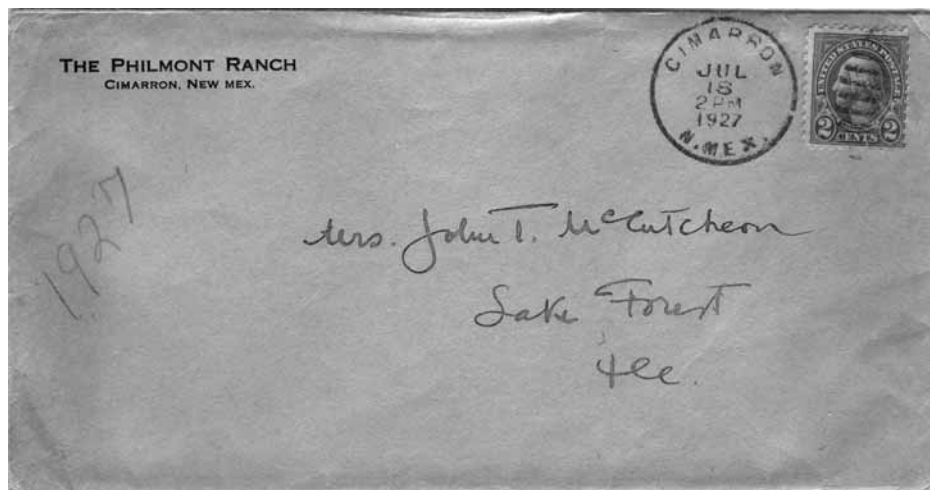 THE PHILMONT RANCH
CIMARRON, NEW MEX.
CIMARRON
JUL
18
2 PM
1927
N. MEX.
UNITED STATES POSTAGE
2 CENTS 2
1927
Mrs. John T. McCutcheon
Lake Forest
Ill.